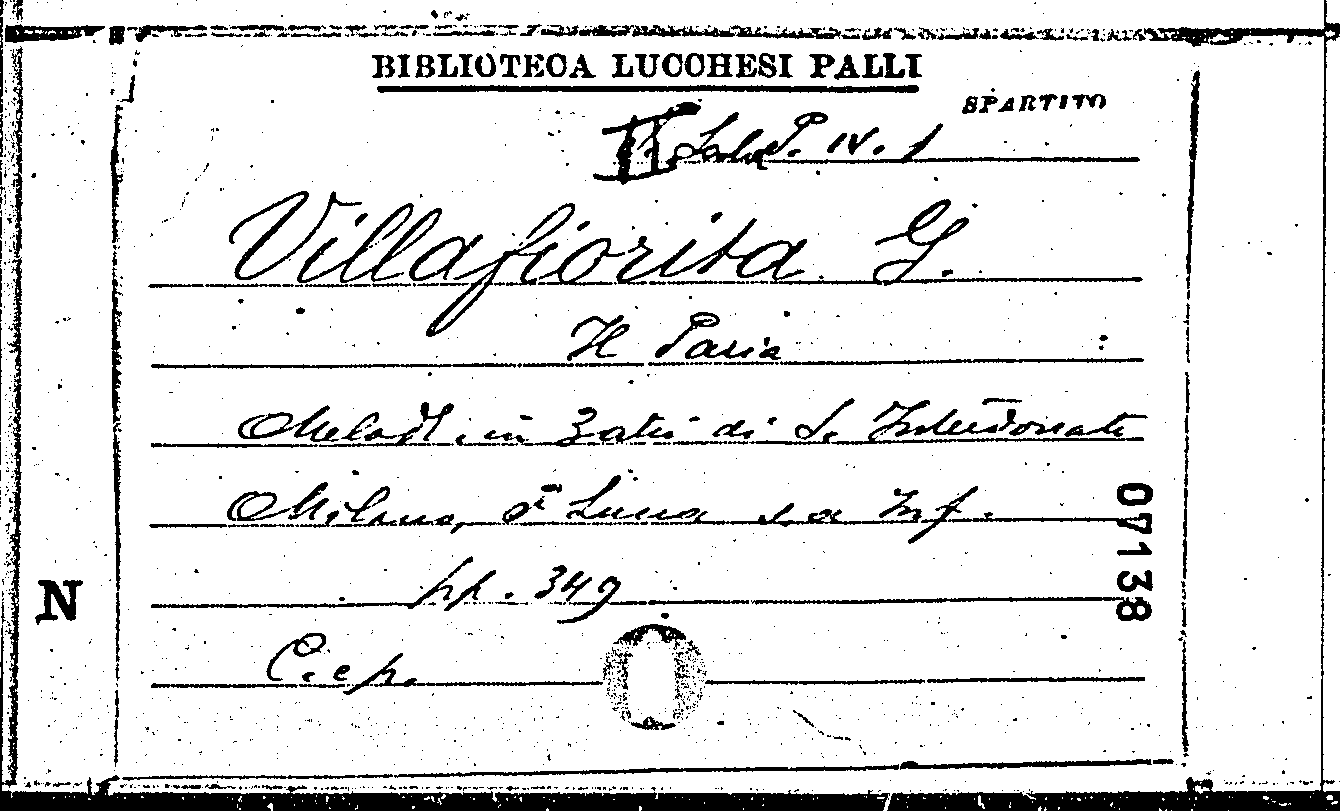 BIBLIOTECA LUCCHESI PALLI
SPARTITO
II Sala P. IV. 1
Villafiorita G.
Il Paria
Melod. in 3 atti di S. Interdonato
Milano, F. Lucca s. a Inf.
pp. 349
C. e p.
N
07138